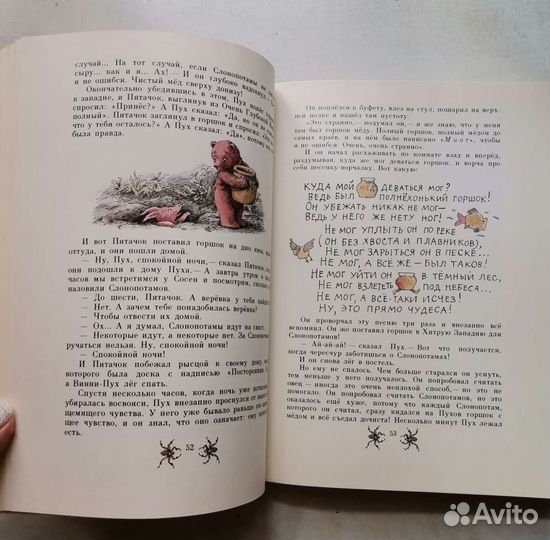 случай... На тот случай, если Слонопотамы не
сыру... как и я... Ах! — И он глубоко вздохнул.
я не ошибся. Чистый мёд сверху донизу!
Окончательно убедившись в этом, Пух
к западне, и Пятачок, выглянув из Очень Глубокой
спросил: «Принёс?» А Пух сказал: «Да, но он не
полный». Пятачок заглянул в горшок и спросил:
у тебя осталось?» А Пух сказал: «Да», потому что это
была правда.
И вот Пятачок поставил горшок на дно
оттуда, и они пошли домой.
— Ну, Пух, спокойной ночи, — сказал Пятачок,
они подошли к дому Пуха. — А завтра утром в
часов мы встретимся у Сосен и посмотрим, сколько
наловили Слонопотамов.
— До шести, Пятачок. А верёвка у тебя найдётся?
— Нет. А зачем тебе понадобилась верёвка?
— Чтобы отвести их домой.
— Ох... А я думал, Слонопотамы идут на свист.
— Некоторые идут, а некоторые нет. За Слонопотамов
ручаться нельзя. Ну, спокойной ночи!
— Спокойной ночи!
И Пятачок побежал рысцой к своему дому,
которого была доска с надписью «Посторонним
а Винни-Пух лёг спать.
Спустя несколько часов, когда ночь уже
убиралась восвояси, Пух внезапно проснулся от
щемящего чувства. У него уже бывало раньше это
щее чувство, и он знал, что оно означает: ему
есть.
52
Он поплёлся к буфету, влез на стул, пошарил на верх-
ней полке и нашёл там пустоту.
«Это странно, — подумал он, — я же знаю, что у меня
там был горшок мёду. Полный горшок, полный мёдом до
самых краёв, и на нём было написано «Миот», чтобы я
не ошибся. Очень, очень странно».
И он начал расхаживать по комнате взад и вперёд,
раздумывая, куда же мог деваться горшок, и ворча про
себя песенку-ворчалку. Вот какую:
КУДА МОЙ МЁД ДЕВАТЬСЯ МОГ?
ВЕДЬ БЫЛ ПОЛНЁХОНЬКИЙ ГОРШОК!
ОН УБЕЖАТЬ НИКАК НЕ МОГ —
ВЕДЬ У НЕГО ЖЕ НЕТУ НОГ!
НЕ МОГ УПЛЫТЬ ОН ПО РЕКЕ
(ОН БЕЗ ХВОСТА И ПЛАВНИКОВ),
НЕ МОГ ЗАРЫТЬСЯ ОН В ПЕСКЕ...
НЕ МОГ, А ВСЁ ЖЕ — БЫЛ ТАКОВ!
НЕ МОГ УЙТИ ОН В ТЁМНЫЙ ЛЕС,
НЕ МОГ ВЗЛЕТЕТЬ ПОД НЕБЕСА...
НЕ МОГ, А ВСЁ-ТАКИ ИСЧЕЗ!
НУ, ЭТО ПРЯМО ЧУДЕСА!
Он проворчал эту песню три раза и внезапно всё
вспомнил. Он же поставил горшок в Хитрую Западню для
Слонопотамов!
— Ай-ай-ай! — сказал Пух. — Вот что получается,
когда чересчур заботишься о Слонопотамах!
И он снова лёг в постель.
Но ему не спалось. Чем больше старался он уснуть,
тем меньше у него получалось. Он попробовал считать
овец — иногда это очень неплохой способ, — но это не
помогало. Он попробовал считать Слонопотамов, но это
оказалось ещё хуже, потому что каждый Слонопотам,
которого он считал, сразу кидался на Пухов горшок с
мёдом и всё съедал дочиста! Несколько минут Пух лежал
53
Avito